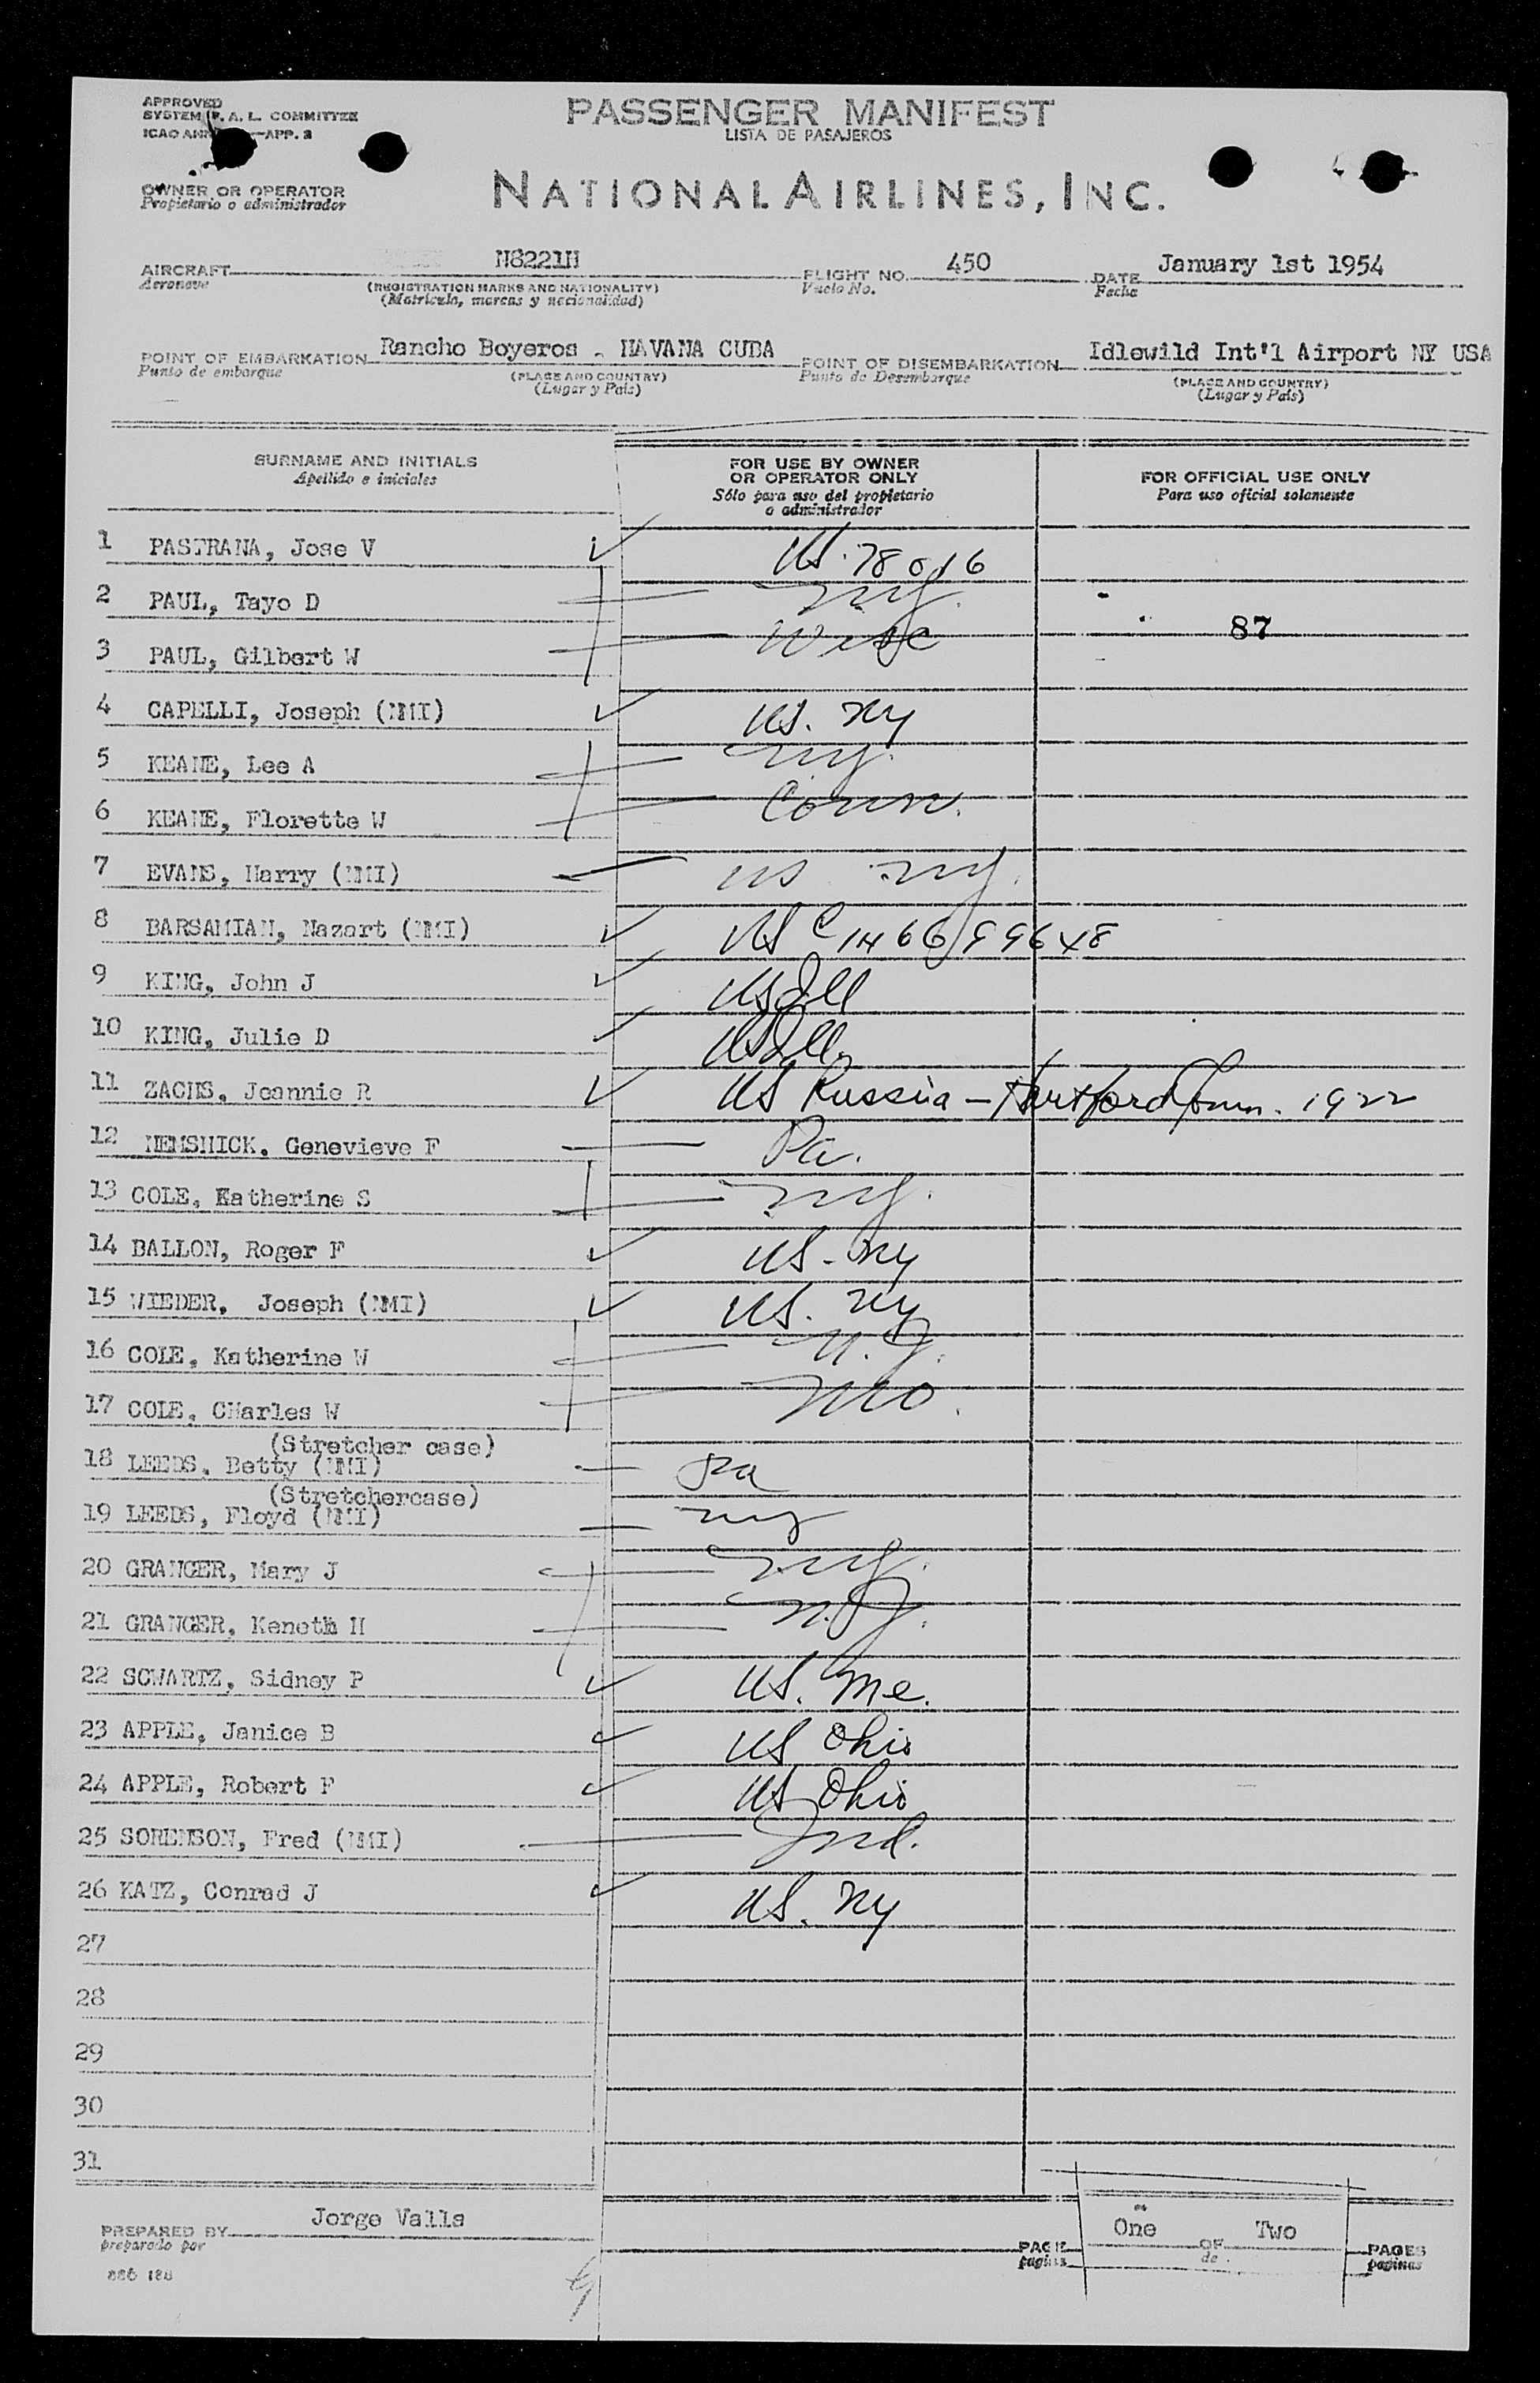 APPROVED
SYSTEM A. L. COMMITTEE
ICAO APP. 2
PASSENGER MANIFEST
LISTA DE PASAJEROS
OWNER OR OPERATOR
Propietario o administrador
NATIONAL AIRLINES, INC.
AIRCRAFT N8221H FLIGHT NO. 450 DATE January 1st 1954
Aeronave (REGISTRATION MARKS AND NATIONALITY) Vuelo No. Fecha
(Matricula, marcas y nacionalidad)
POINT OF EMBARKATION Rancho Boyeros - HAVANA CUBA POINT OF DISEMBARKATION Idlewild Int'l Airport NY USA
Punto de embarque (PLACE AND COUNTRY) Punto de Desembarque (PLACE AND COUNTRY)
(Lugar y País) (Lugar y País)
SURNAME AND INITIALS FOR USE BY OWNER OR OPERATOR ONLY FOR OFFICIAL USE ONLY
Apellido e iniciales Sólo para uso del propietario o administrador Para uso oficial solamente
1 PASTRANA, Jose V US. 78016
2 PAUL, Tayo D NY.
3 PAUL, Gilbert W Wisc 87
4 CAPELLI, Joseph (NMI) US. NY
5 KEANE, Lee A NY.
6 KEANE, Florette W Conn.
7 EVANS, Harry (NMI) US NY.
8 BARSAMIAN, Nazart (NMI) US C
9 KING, John J US Ill
10 KING, Julie D US Ill.
11 ZACHS, Jeannie R US Russia - Hartford Conn. 1922
12 NEMSHICK, Genevieve F Pa.
13 COLE, Katherine S NY.
14 BALLON, Roger F US - NY
15 WIEDER, Joseph (NMI) US. NY
16 COLE, Katherine W N.J.
17 COLE, CHarles W MO.
(Stretcher case)
18 LEEDS, Betty (NMI) Pa
(Stretchercase)
19 LEEDS, Floyd (NMI) NY
20 GRANGER, Mary J NY.
21 GRANGER, Keneth H N.J.
22 SCWARTZ, Sidney P US. Me.
23 APPLE, Janice B US Ohio
24 APPLE, Robert F US Ohio
25 SORENSON, Fred (NMI) Ind.
26 KATZ, Conrad J US. NY
27
28
29
30
31
PREPARED BY Jorge Valls PAGE One OF Two PAGES
preparado por pagina de paginas